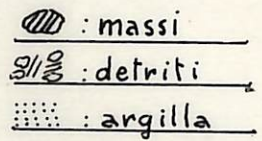 : massi
: detriti
: argilla